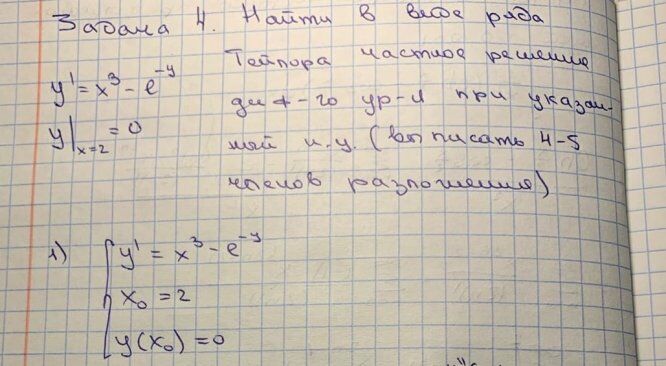 Задача 4. Найти в виде ряда
Тейлора частное решение
диф-го ур-я при указан-
ной н.у. (выписать 4-5
членов разложения)
y' = x³ - e^{-y}
y|_{x=2} = 0
1) { y' = x³ - e^{-y}
x₀ = 2
y(x₀) = 0